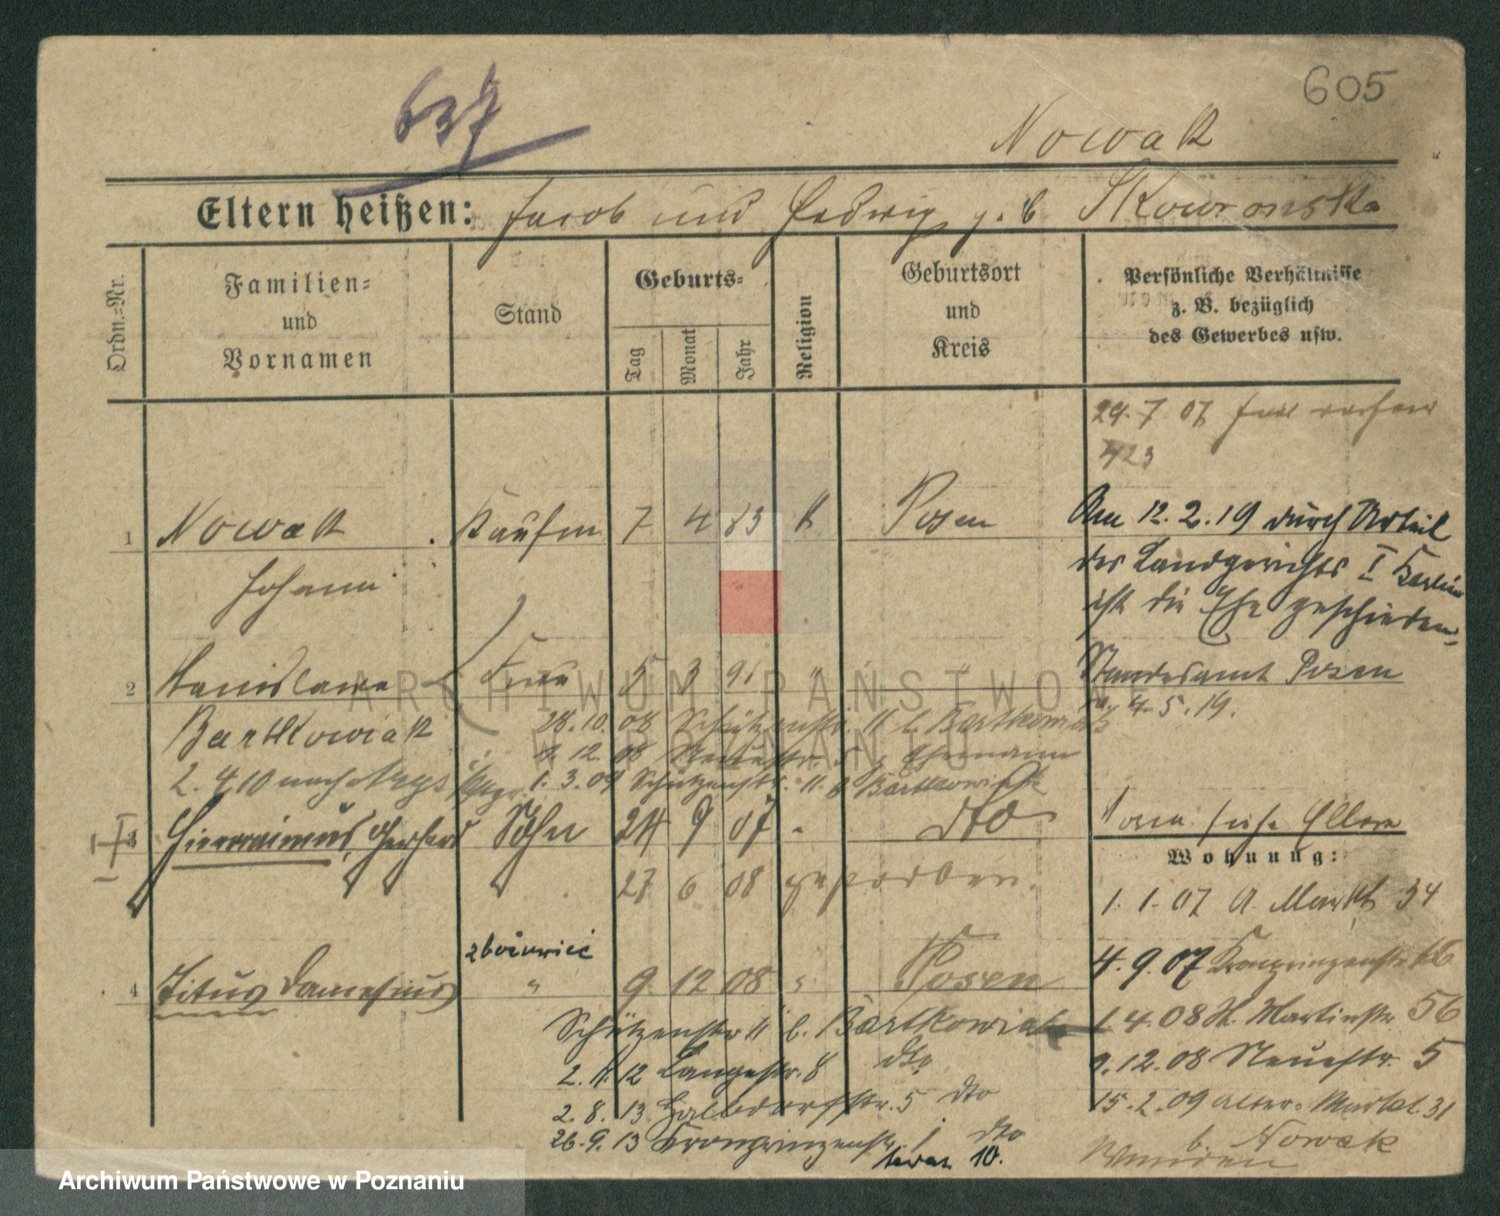 637
605
Nowak
Eltern heißen: Jacob und Hedwig geb Skowronska
Ordn.-Nr.
Familien- und Vornamen
Stand
Geburts-
Tag
Monat
Jahr
Religion
Geburtsort und Kreis
Persönliche Verhältnisse z. B. bezüglich des Gewerbes usw.
29.7.07
423
1 Nowak Kaufm 7 4 83 k Posen
Johann
Am 12.2.19 durch Urteil
des Landgerichts I Berlin
ist die Ehe geschieden.
Standesamt Posen
4.5.19.
2 Stanislawa Frau 5 3 91 "
Bartkowiak
28.10.08 Schützenstr. 11 b. Bartkowiak
9.12.08 Neuestr. 5 Ehemann
2.4.10 nach
1.3.09 Schützenstr. 11 b Bartkowiak
3 Hieronimus, Gerhard Sohn 24 9 07 " dto
27 6 08 gestorben.
siehe Eltern
Wohnung:
1.1.07 A. Markt 34
4.9.07 Kronprinzenstr
1.4.08 St. Martinstr 56
9.12.08 Neuestr. 5
15.2.09 Alter-Markt 31
b. Nowak
4 Titus Damasius " 9. 12 08 " Posen
Schützenstr 11 b. Bartkowiak
Langestr. 8 dto
2.8.13 Halbdorfstr. 5 dto
26.9.13 Kronprinzenstr. dto
teraz 10.
ARCHIWUM PAŃSTWOWE
W POZNANIU
Archiwum Państwowe w Poznaniu